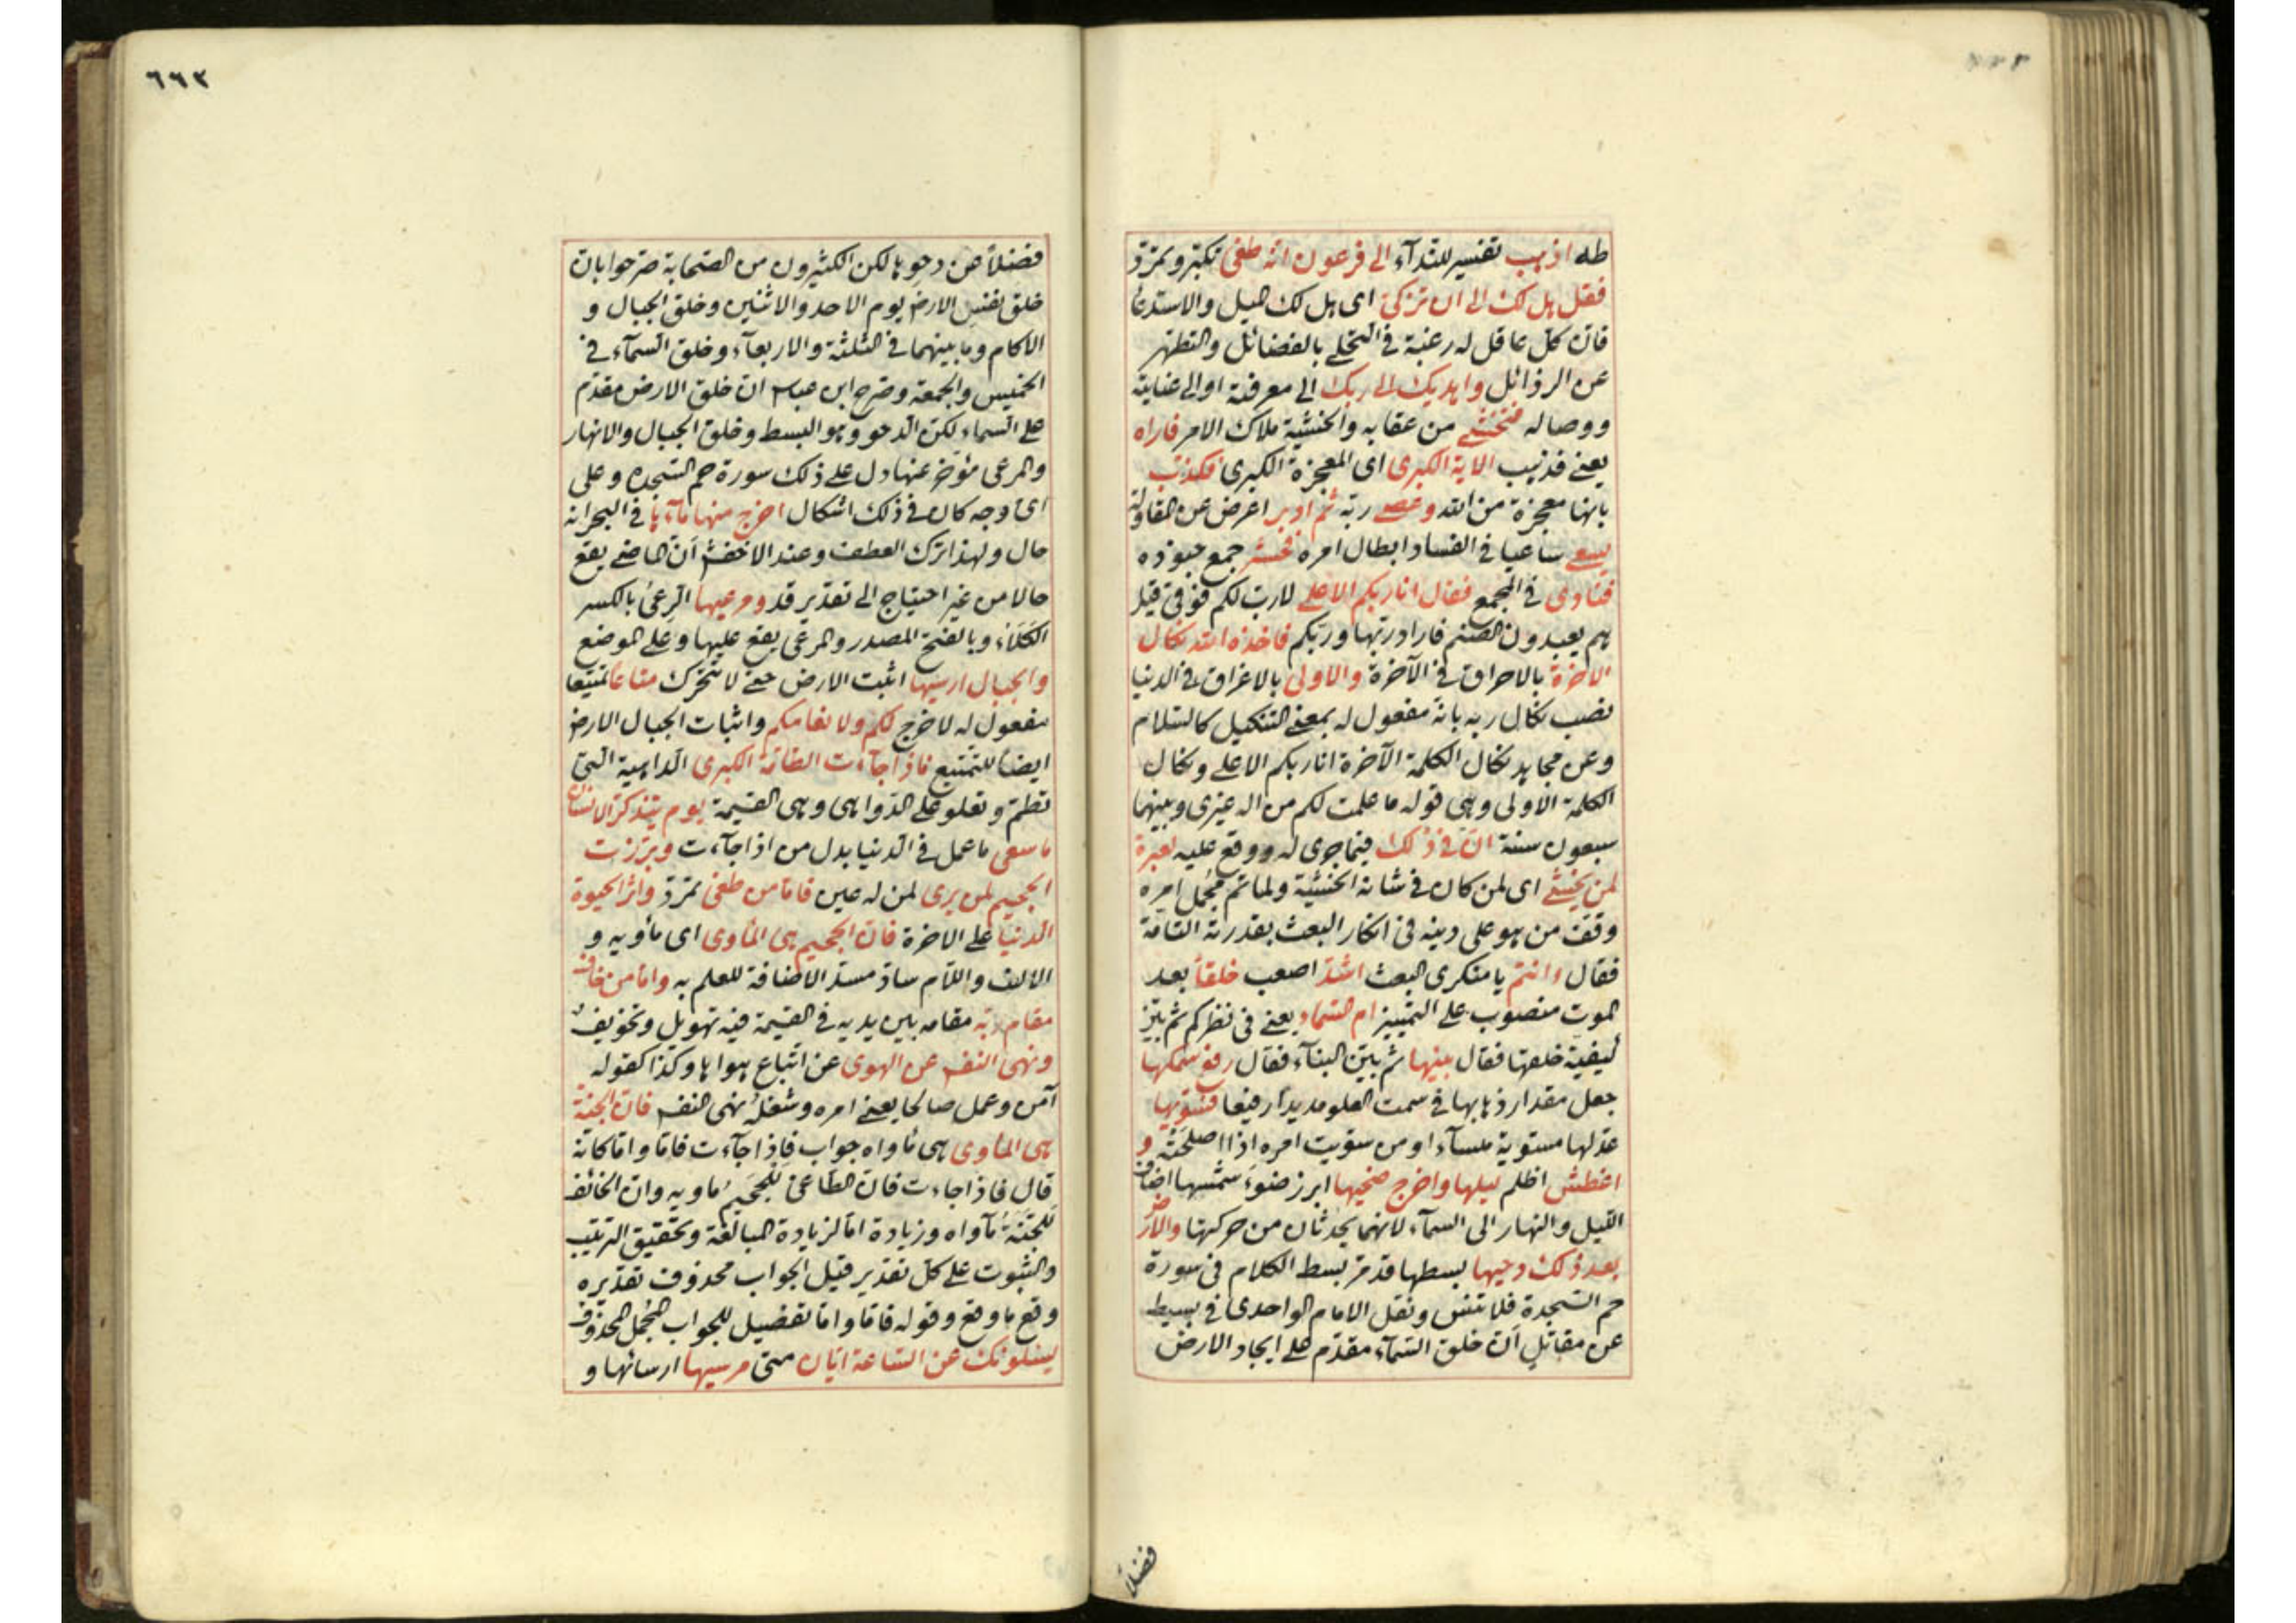 طه اذهب تفسير للندآء الى فرعون انه طغى تكبر وتمرّد
فقل هل لك الى ان تزكى اى هل لك الميل والاستدعا
فان كل عاقل له رغبة فى التحلے بالفضائل والتطهر
عن الرذائل واهديك الى ربك الى معرفته او الى عنايته
ووصاله فتخشے من عقابه والخشية ملاك الامر فاراه
يعنے فذهب الاية الكبرى اى المعجزة الكبرى فكذب
بانها معجزة من الله وعصے ربّه ثم ادبر اعرض عن المقاولة
يسعے ساعيا فى الفساد ابطال امره فحشر جمع جنوده
فنادى فى المجمع فقال انا ربكم الاعلے لا رب لكم فوقى قيل
هم يعبدون الصنم فاراد ربها وربكم فاخذه الله نكال
الاخرة بالاحراق فى الآخرة والاولى بالاغراق فى الدنيا
نصب نكال ربه بانه مفعول له بمعنے التنكيل كالسلام
وعن مجاهد نكال الكلمة الآخرة انا ربكم الاعلے ونكال
الكلمة الاولى وهى قوله ما علمت لكم من اله غيرى وبينهما
سبعون سنة ان فى ذلك فيما جرى له ووقع عليه لعبرة
لمن يخشے اى لمن كان فى شانه الخشية ولما تم مجمل امره
وقف من هو على دينه فى انكار البعث بقدرته التامّة
فقال ءانتم يا منكرى البعث اشدّ اصعب خلقاً بعد
الموت منصوب على التمييز ام السماء يعنے فى نظركم ثم بيّن
كيفية خلقتها فقال بنيها ثم بيّن البنآء فقال رفع سمكها
جعل مقدار ذهابها فى سمت العلو مديداً رفيعا فسوّيها
عدلها مستوية ملسآء او من سوّيت امره اذا اصلحته و
اغطش اظلم ليلها واخرج ضحيها ابرز ضوء شمسها اضاف
الليل والنهار الى السمآء لانهما يحدثان من حركتها والارض
بعد ذلك دحيها بسطها قد مرّ بسط الكلام فى سورة
حم السجدة فلا تنس ونقل الامام الواحدى فى بسيط
عن مقاتل ان خلق السّمآء مقدّم على ايجاد الارض
فضلاً
٦٦٣
فضلاً عن دحوها لكن الكثيرون من الصحابة صرحوا بان
خلق نفس الارض يوم الاحد والاثنين وخلق الجبال و
الاكام وما بينهما فى الثلثة والاربعآء وخلق السمآء فى
الخميس والجمعة وصرح ابن عباس ان خلق الارض مقدّم
على السماء لكن الدحو وهو البسط وخلق الجبال والانهار
والمرعى مؤخر عنها دل على ذلك سورة حم السجده وعلى
اى وجه كان فى ذلك اشكال اخرج منها مآءها فى البحر انه
حال ولهذا ترك العطف وعند الاخفش ان الماضے يقع
حالا من غير احتياج الى تقدير قد ومرعيها الرعىُ بالكسر
الكلاء وبالفتح المصدر والمرعى يقع عليها وعلى الموضع
والجبال ارسيها اثبت الارض حتے لا تتحرك متاعاً تمتيعا
مفعول له لاخرج لكم ولانعامكم واثبات الجبال الارض
ايضا للتمتيع فاذا جآءت الطامّة الكبرى الداهية التى
تطمّ وتعلو على الدّواهى وهى القيمة يوم يتذكر الانسان
ما سعى ما عمل فى الدنيا بدل من اذا جآءت وبرّزت
الجحيم لمن يرى لمن له عين فامّا من طغى تمرّد واثر الحيوة
الدنيا على الاخرة فان الجحيم هى المأوى اى مأويه و
الالف واللام سادّ مسدّ الاضافة للعلم به وامّا من خاف
مقام ربّه مقامه بين يديه فى القيمة فيه تهويل وتخويف
ونهى النفس عن الهوى عن اتباع هواها وكذا كقوله
آمن وعمل صالحا يعنے امره وشغله نهى النفس فان الجنّة
هى المأوى هى مأواه جواب فاذا جآءت فامّا وامّا كانّه
قال فاذا جاءت فان الطاغى للجحيمُ مأويه وان الخائف
للجنّة مأواه وزيادة امّا لزيادة المبالغة وتحقيق الترتيب
والثبوت على كل تقدير قيل الجواب محذوف تقديره
وقع ما وقع وقوله فامّا وامّا تفصيل للجواب المجمل المحذوف
يسئلونك عن السّاعة ايّان متى مرسيها ارسائها و